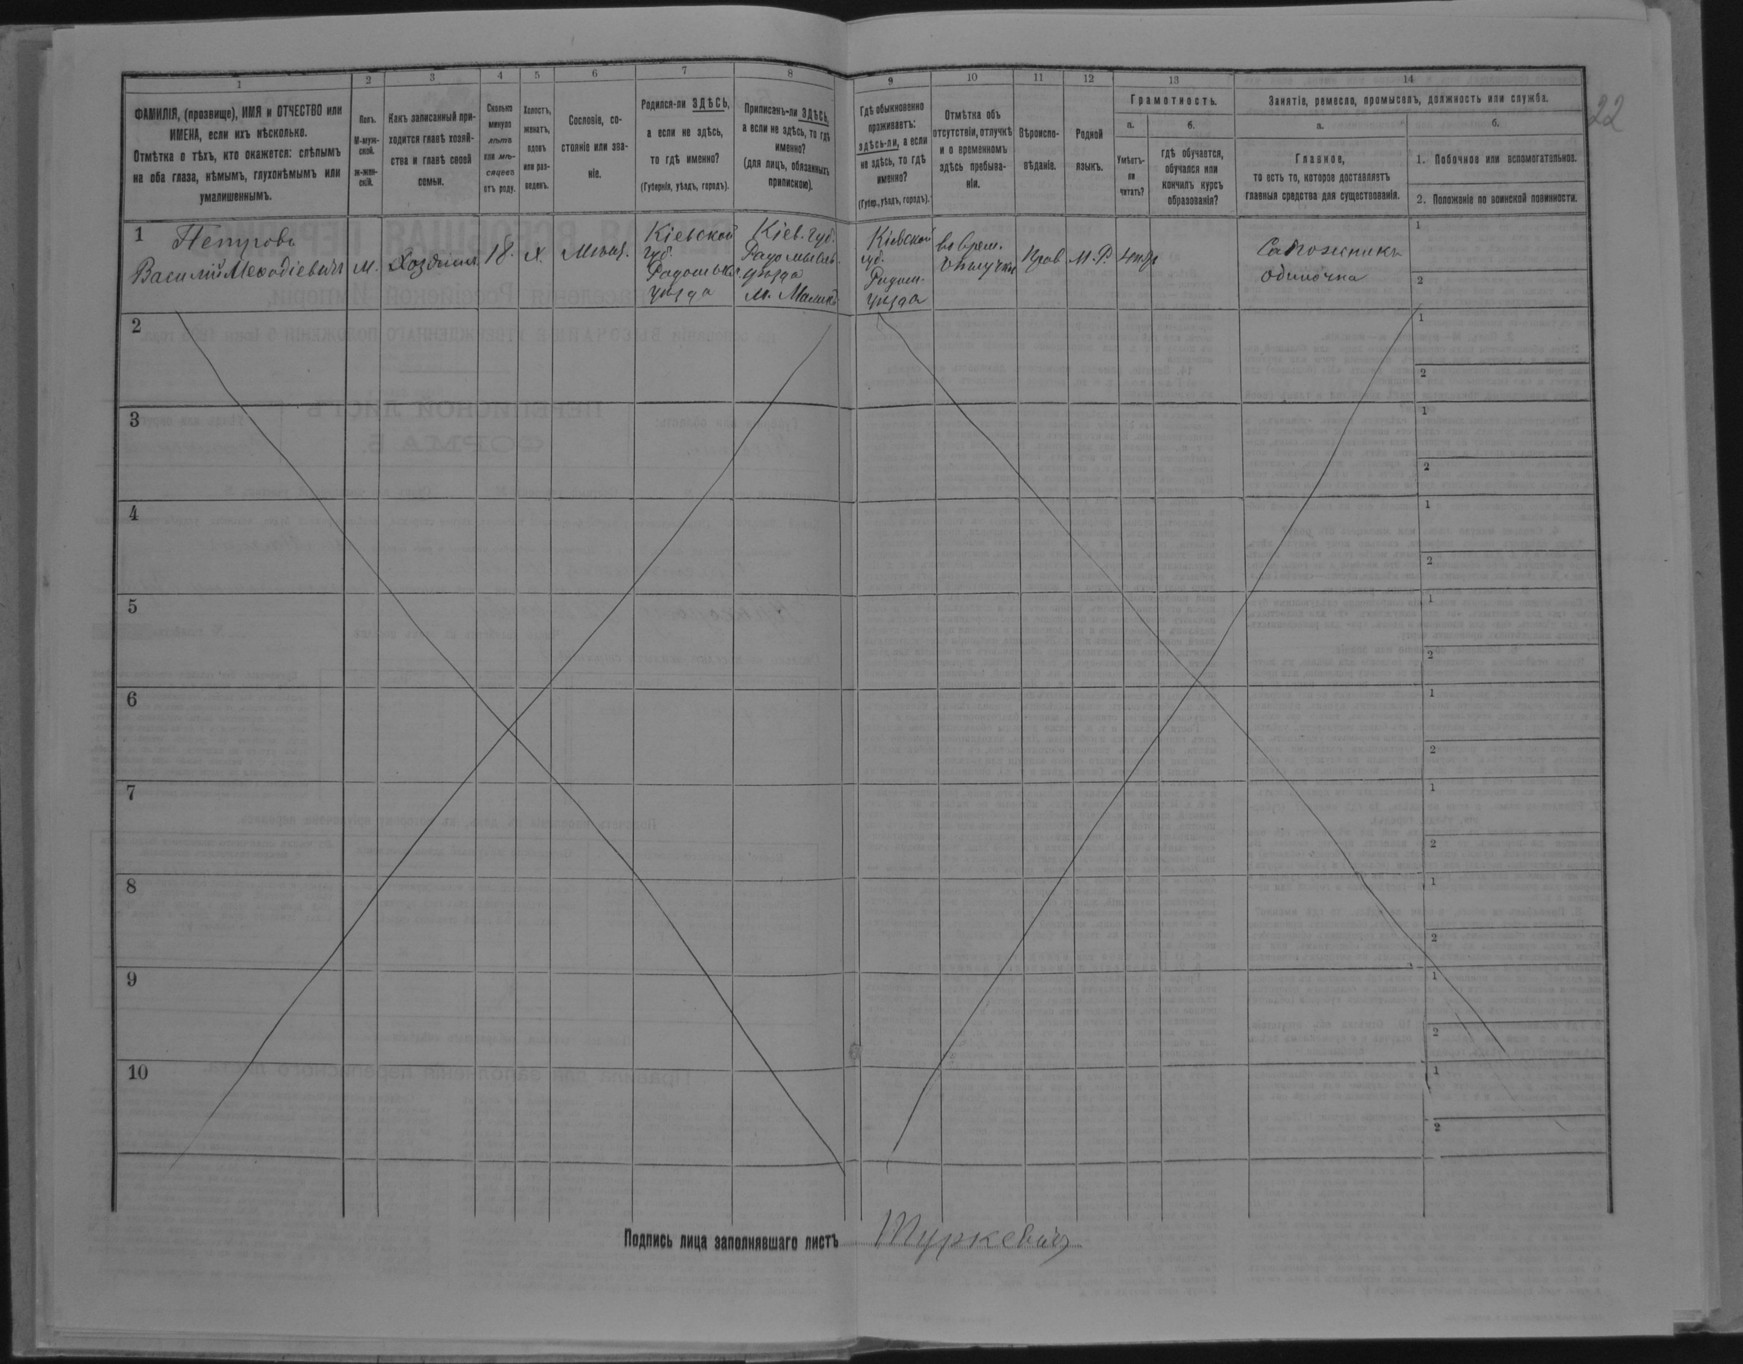 22
1 2 3 4 5 6 7 8 9 10 11 12 13 14
ФАМИЛІЯ, (прозвище), ИМЯ и ОТЧЕСТВО или
ИМЕНА, если ихъ нѣсколько.
Отмѣтка о тѣхъ, кто окажется: слѣпымъ
на оба глаза, нѣмымъ, глухонѣмымъ или
умалишеннымъ.
Полъ.
М-муж-
ской.
ж-жен-
скій.
Какъ записанный при-
ходится главѣ хозяй-
ства и главѣ своей
семьи.
Сколько
минуло
лѣтъ
или мѣ-
сяцевъ
отъ роду.
Холостъ,
женатъ,
вдовъ
или раз-
веденъ.
Сословіе, со-
стояніе или зва-
ніе.
Родился-ли ЗДѢСЬ,
а если не здѣсь,
то гдѣ именно?
(Губернія, уѣздъ, городъ).
Приписанъ-ли ЗДѢСЬ,
а если не здѣсь, то гдѣ
именно?
(для лицъ, обязанныхъ
припискою).
Гдѣ обыкновенно
проживаетъ:
здѣсь-ли, а если
не здѣсь, то гдѣ
именно?
(Губер., уѣздъ, городъ).
Отмѣтка объ
отсутствіи, отлучкѣ
и о временномъ
здѣсь пребыва-
ніи.
Вѣроиспо-
вѣданіе.
Родной
языкъ.
Грамотность.
а.
Умѣетъ-
ли
читать?
б.
гдѣ обучается,
обучался или
кончилъ курсъ
образованія?
Занятіе, ремесло, промыселъ, должность или служба.
а.
Главное,
то есть то, которое доставляетъ
главныя средства для существованія.
б.
1. Побочное или вспомогательное.
2. Положеніе по воинской повинности.
1
Петровъ
Василій Меѳодіевичъ
М.
Хозяинъ
18.
Х.
Мѣщ.
Кіевской
губ.
уѣзда
Кіев. губ.
Радомысл.
уѣзда
м.
Кіевской
губ.
Радом.
уѣзда
Прав
М.Р.
Сапожникъ
одиночка
1
2
2
1
2
3
1
2
4
1
2
5
1
2
6
1
2
7
1
2
8
1
2
9
1
2
10
1
2
Подпись лица заполнявшаго листъ Туркевичъ